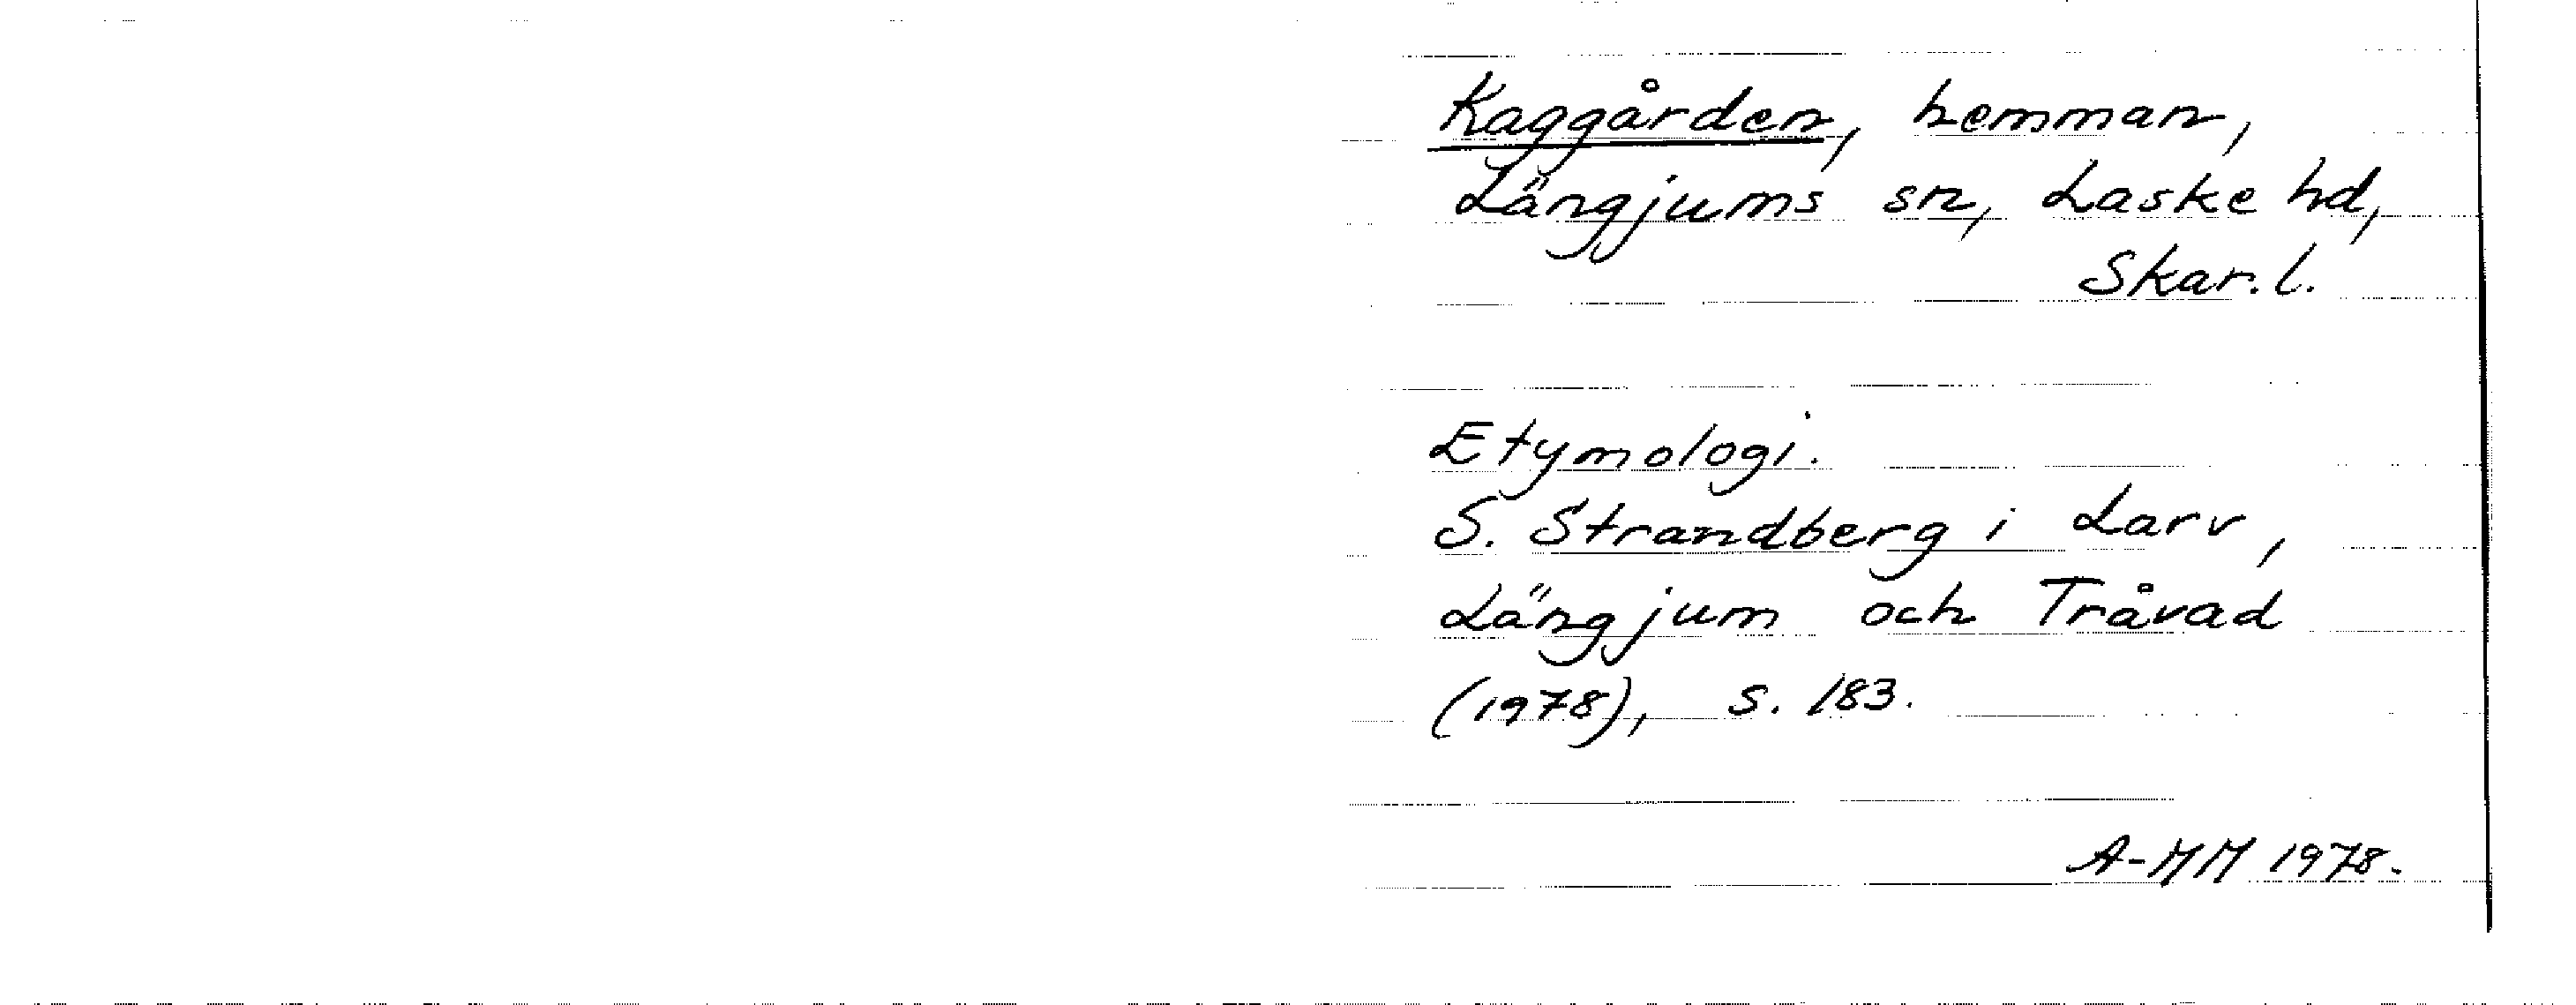 Kaggården, hemman,
Längjums sn, Laske hd,
Skar. l.
Etymologi.
S. Strandberg i Larv,
Längjum och Tråvad
(1978), s. 183.
A-MM 1978.